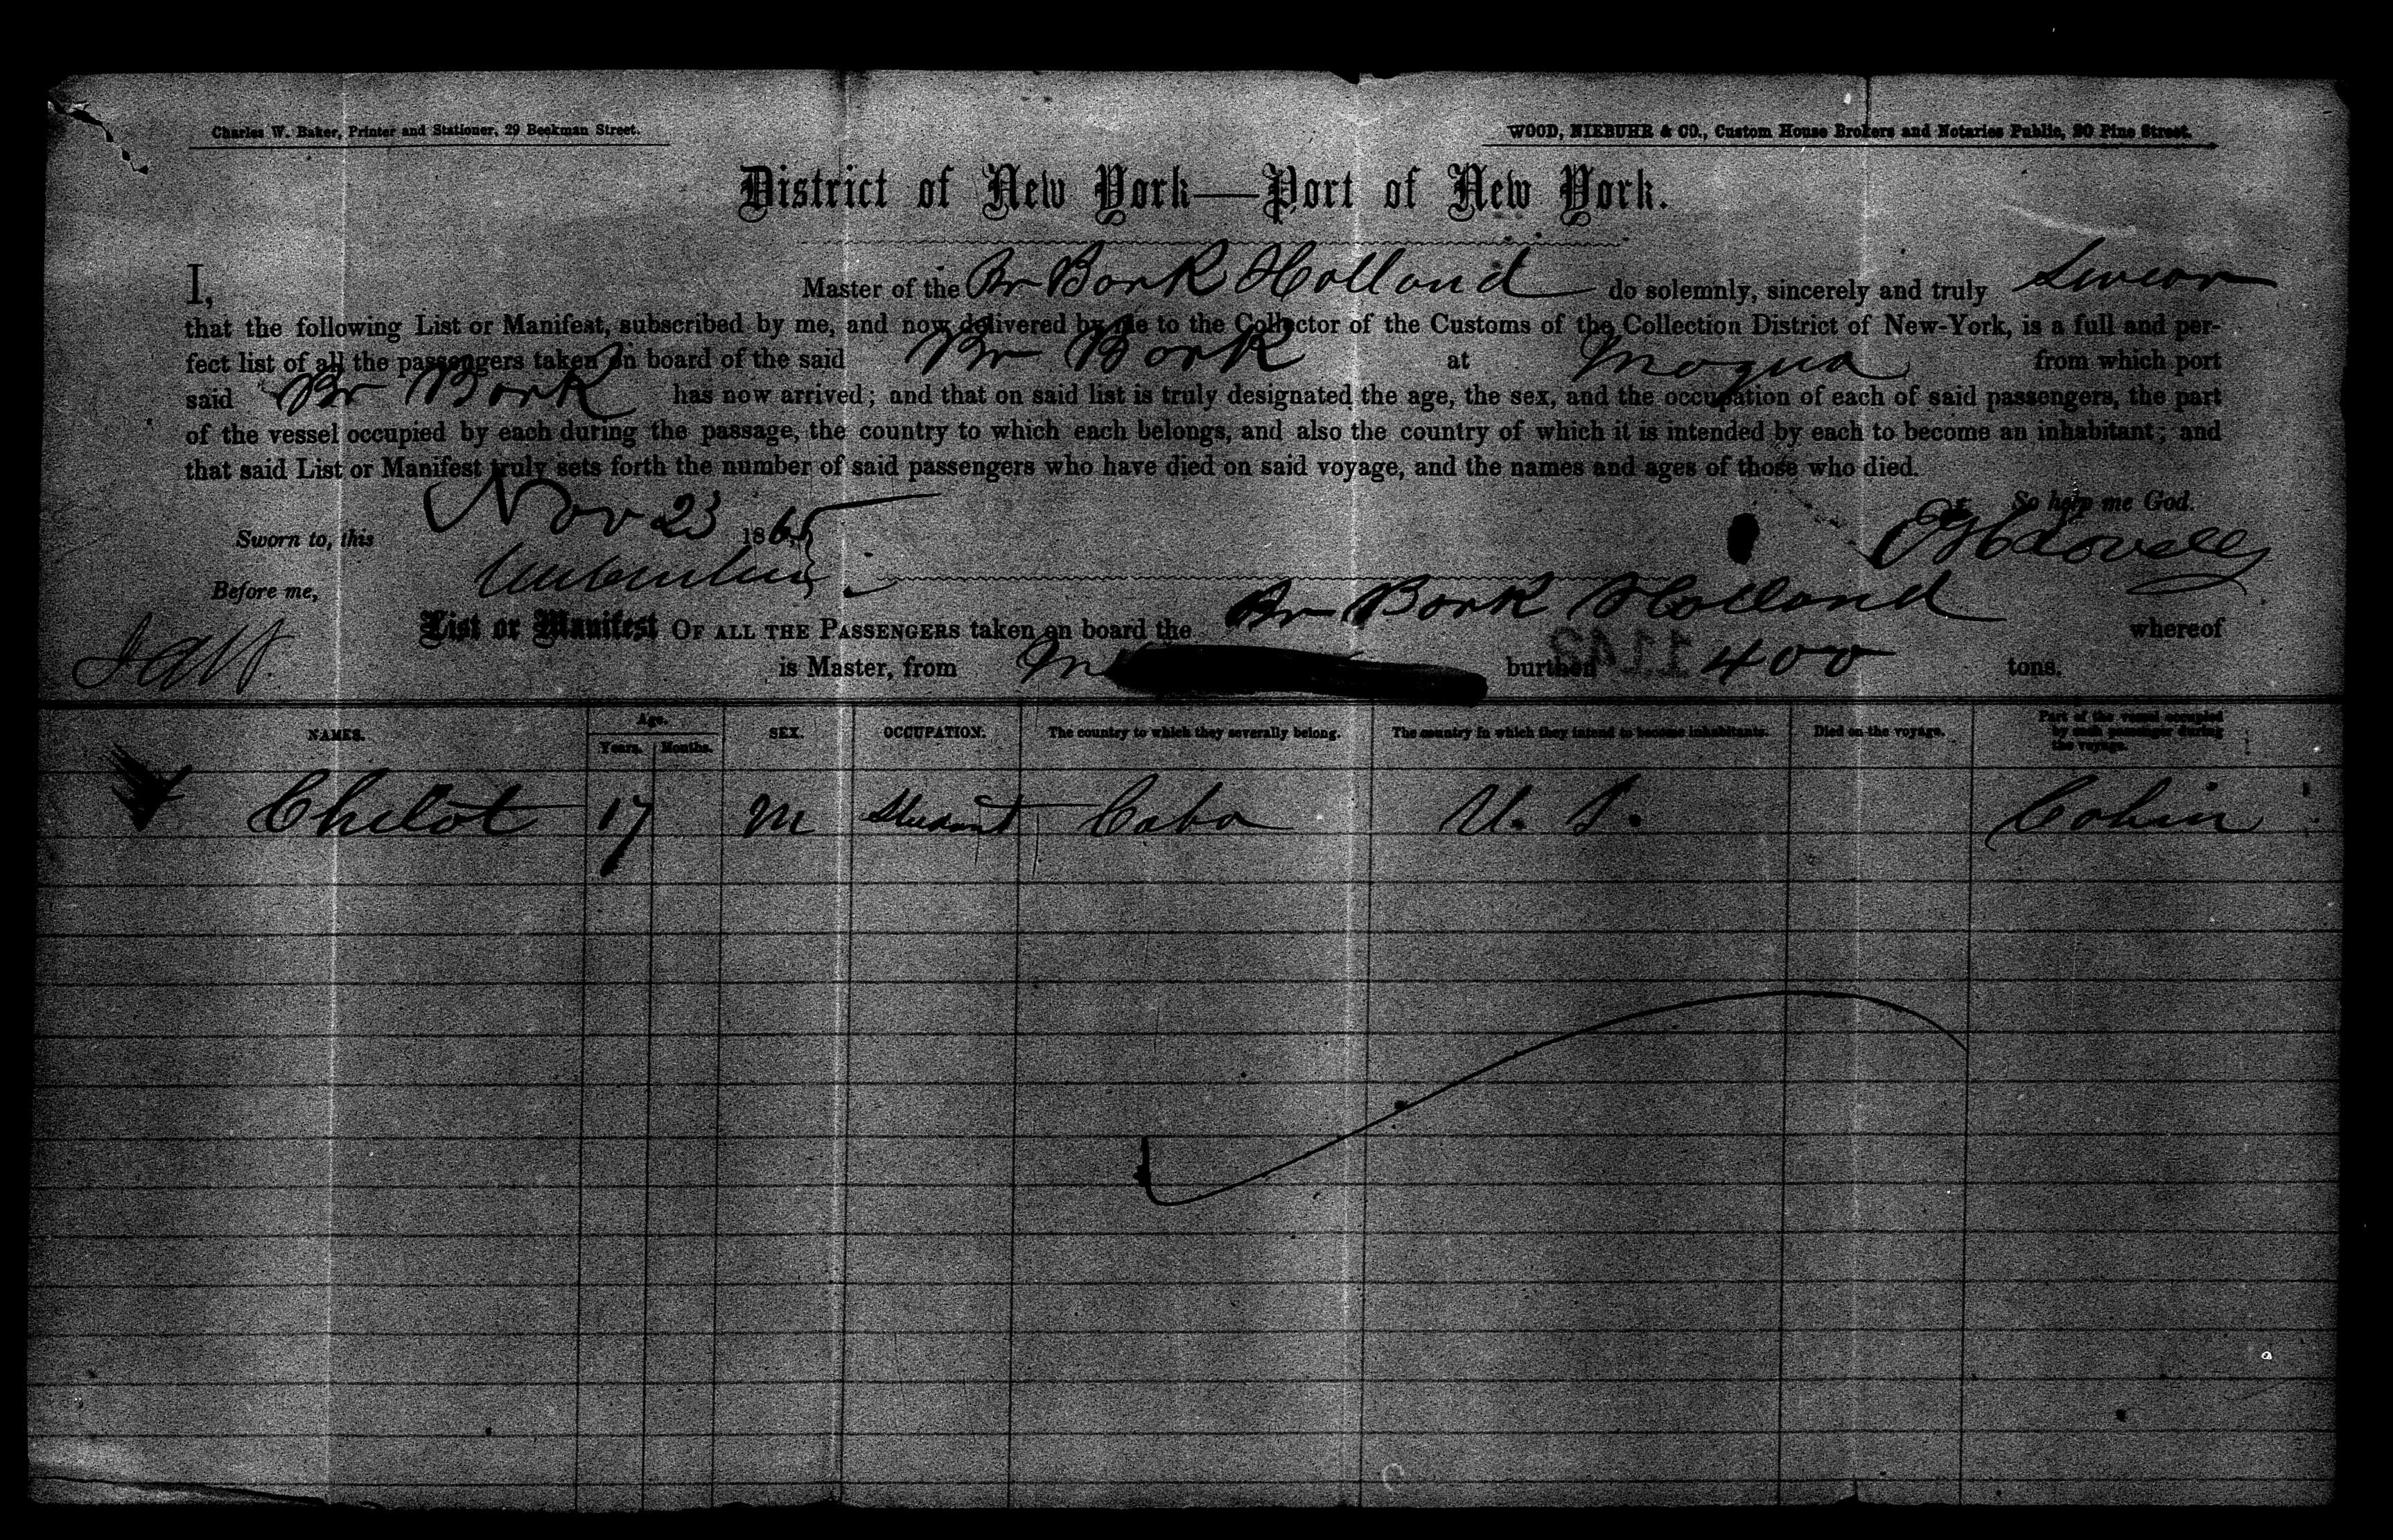 Charles W. Baker, Printer and Stationer, 29 Beekman Street.
WOOD, NIEBUHR & CO., Custom House Brokers and Notaries Public, 90 Pine Street.
District of New York—Port of New York.
I, Master of the Br Bark Holland do solemnly, sincerely and truly Swear
that the following List or Manifest, subscribed by me, and now delivered by me to the Collector of the Customs of the Collection District of New-York, is a full and per-
fect list of all the passengers taken on board of the said Br Bark at Moqua from which port
said Br Bark has now arrived; and that on said list is truly designated the age, the sex, and the occupation of each of said passengers, the part
of the vessel occupied by each during the passage, the country to which each belongs, and also the country of which it is intended by each to become an inhabitant; and
that said List or Manifest truly sets forth the number of said passengers who have died on said voyage, and the names and ages of those who died.
So help me God.
Sworn to, this Nov 23 1865
Lovell
Before me,
List or Manifest OF ALL THE PASSENGERS taken on board the Br Bark Holland whereof
is Master, from burthen 400 tons.
NAMES. Age. Years. Months. SEX. OCCUPATION. The country to which they severally belong. The country in which they intend to become inhabitants. Died on the voyage. Part of the vessel occupied by each passenger during the voyage.
Chelot 17 M Student Cuba U. S. Cabin